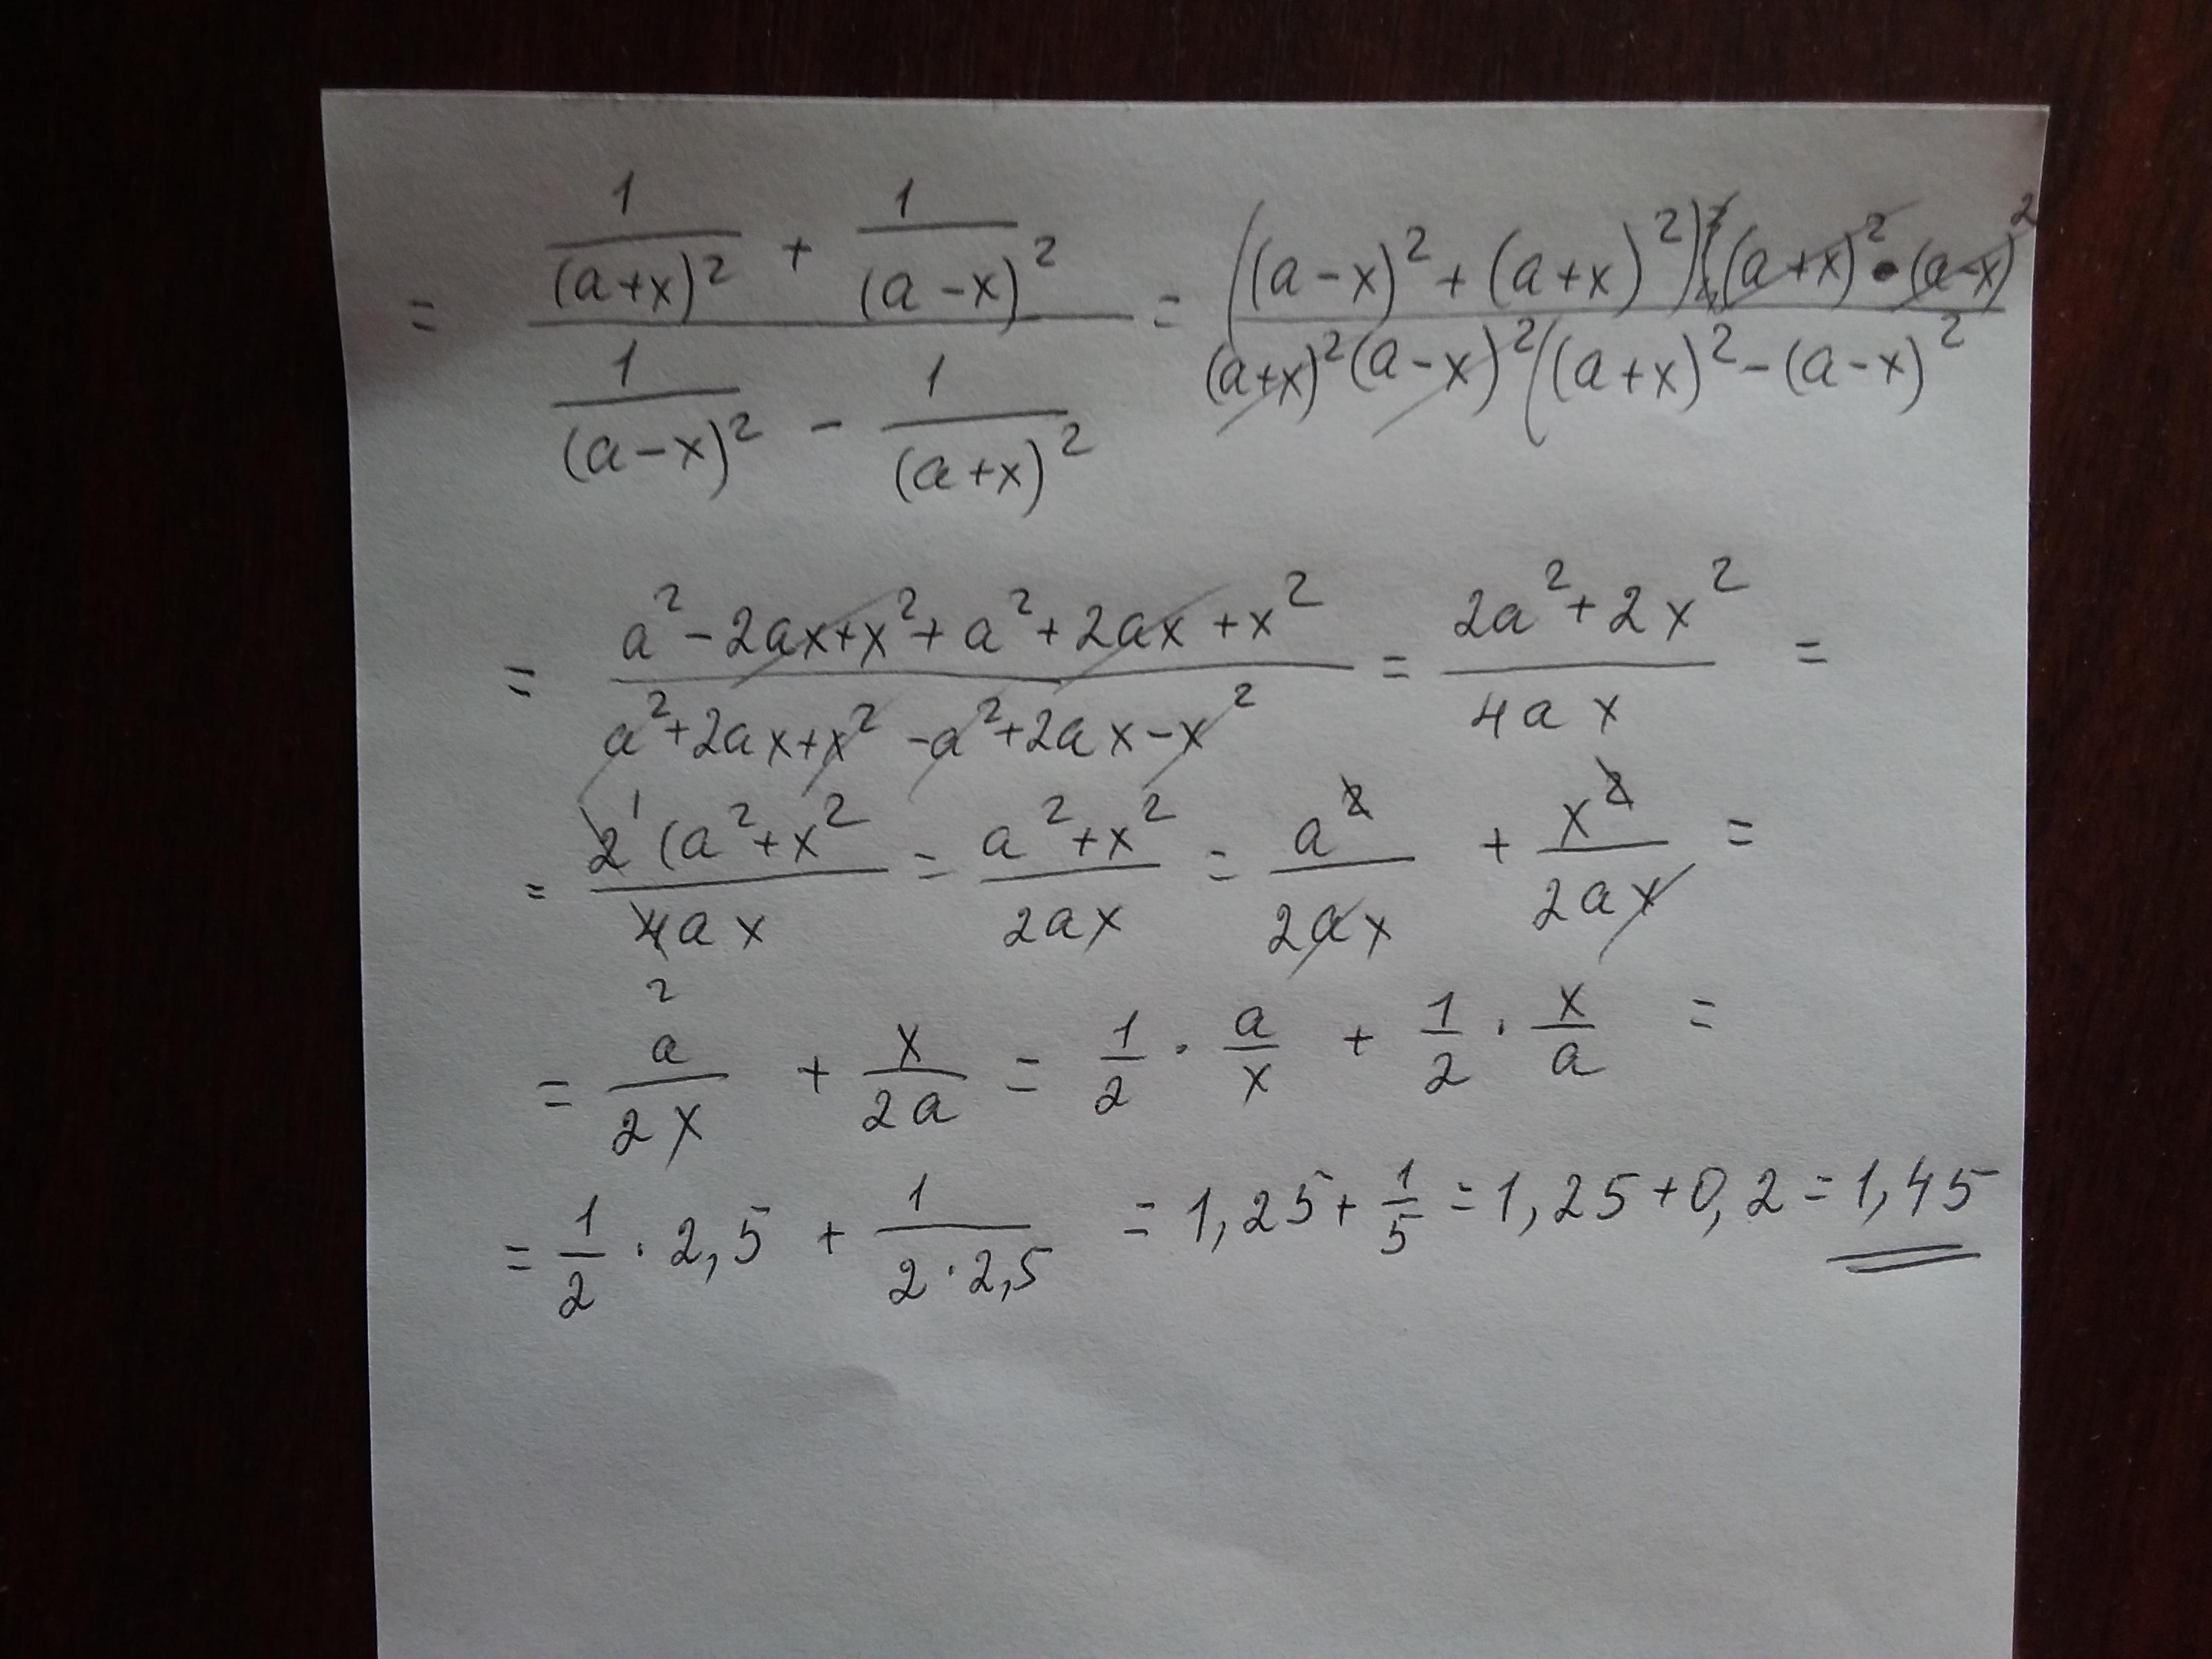 = (1/(a+x)² + 1/(a-x)²) / (1/(a-x)² - 1/(a+x)²) = ((a-x)² + (a+x)²)(a+x)² • (a-x)² / (a+x)²(a-x)²((a+x)² - (a-x)²
= a² - 2ax + x² + a² + 2ax + x² / a² + 2ax + x² - a² + 2ax - x² = 2a² + 2x² / 4ax =
= 2 1 (a² + x² / 4ax 2 = a² + x² / 2ax = a² / 2ax + x² / 2ax =
= a / 2x + x / 2a = 1/2 · a/x + 1/2 · x/a =
= 1/2 · 2,5 + 1 / 2 · 2,5 = 1,25 + 1/5 = 1,25 + 0,2 = 1,45